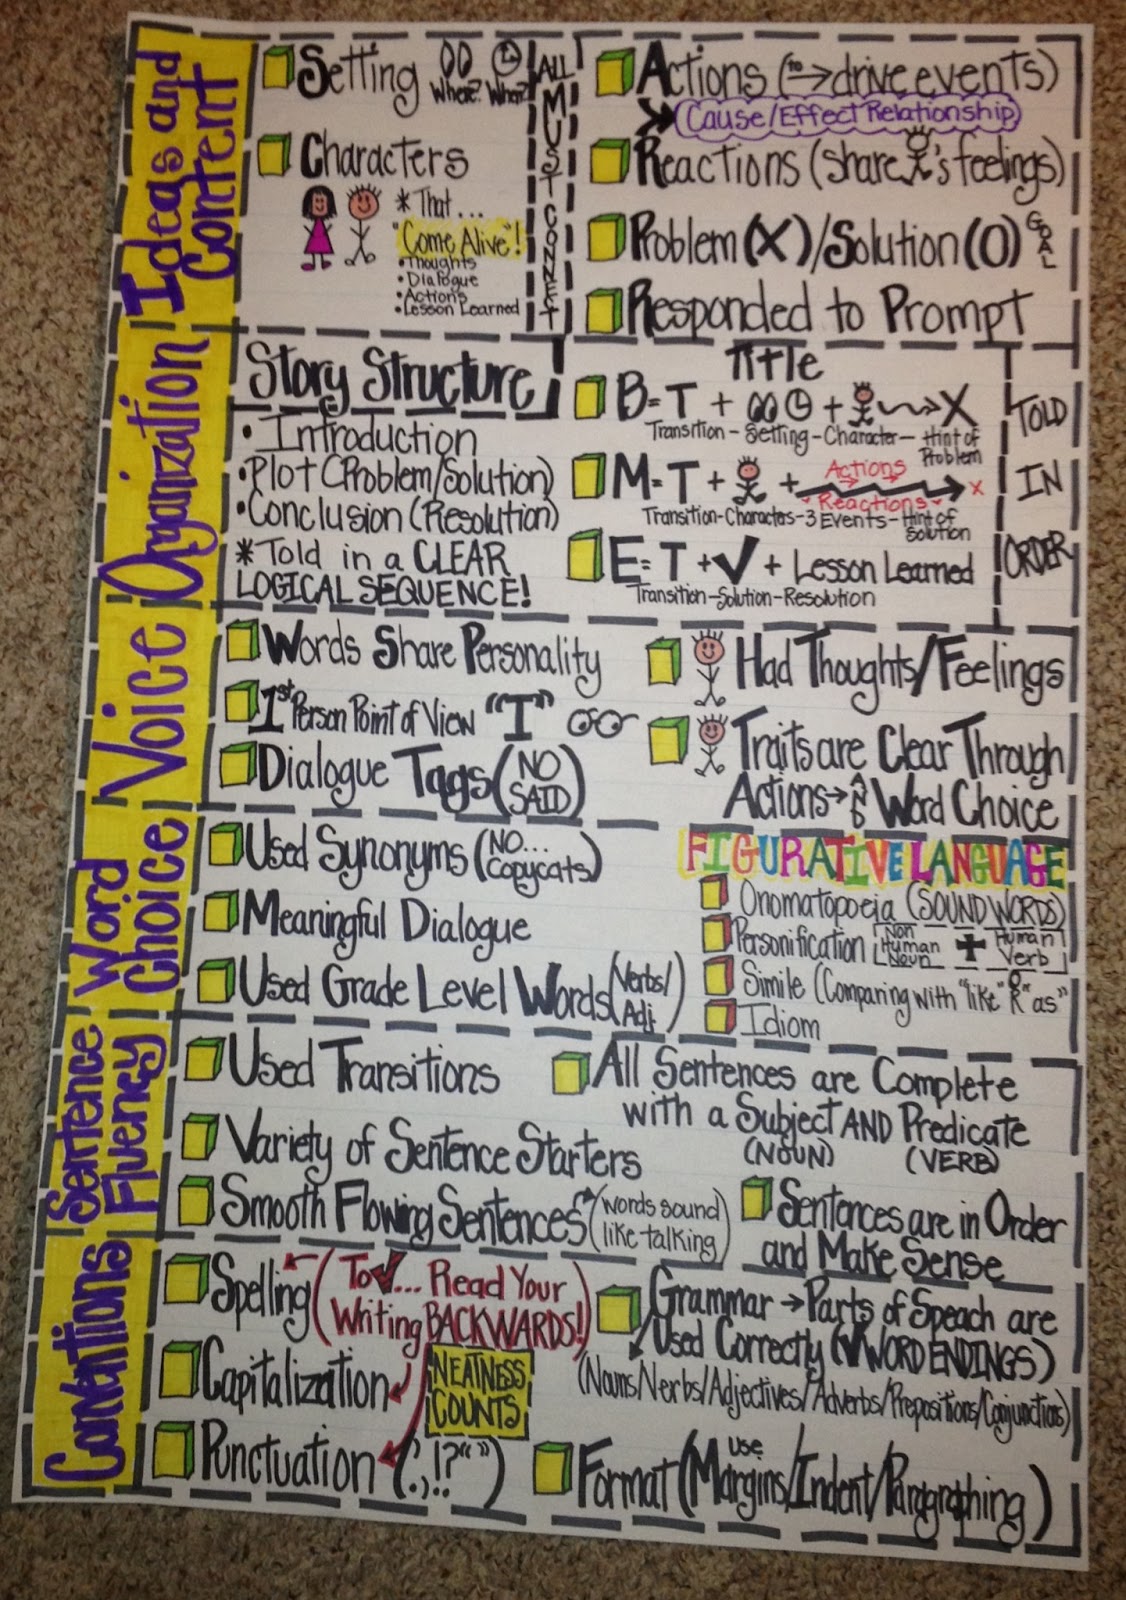 Ideas and
Content
Setting
Where? When?
Characters
* That...
"Come Alive"!
• Thoughts
• Dialogue
• Actions
• Lesson Learned
ALL MUST CONNECT
Actions (to → drive events)
Cause/Effect Relationship
Reactions (share 's feelings)
Problem (X)/Solution (O) GOAL
Responded to Prompt
Organization
Story Structure
• Introduction
• Plot (Problem/Solution)
• Conclusion (Resolution)
* Told in a CLEAR
LOGICAL SEQUENCE!
Title
B = T + + X
Transition - Setting - Character - Hint of
Problem
M = T + + Actions X
Reactions
Transition - Characters - 3 Events - Hint of
Solution
E = T + ✓ + Lesson Learned
Transition - Solution - Resolution
TOLD
IN
ORDER
Voice
Words Share Personality
1st Person Point of View "I"
Dialogue Tags (NO
SAID)
Had Thoughts/Feelings
Traits are Clear Through
Actions → AND Word Choice
Word
Choice
Used Synonyms (NO...
Copycats)
Meaningful Dialogue
Used Grade Level Words (Verbs/
Adj.
FIGURATIVE LANGUAGE
Onomatopoeia (SOUND WORDS)
Personification [Non
Human
Noun + Human
Verb]
Simile (Comparing with "like" OR "as"
Idiom
Sentence
Fluency
Used Transitions
Variety of Sentence Starters
Smooth Flowing Sentences → (words sound
like talking)
All Sentences are Complete
with a Subject AND Predicate
(NOUN) (VERB)
Sentences are in Order
and Make Sense
Conventions
Spelling (To ✓... Read Your
Writing BACKWARDS!)
Capitalization
Punctuation (. , ! ? " ")
NEATNESS
COUNTS
Grammar → Parts of Speach are
Used Correctly (✓ WORD ENDINGS)
(Nouns/Verbs/Adjectives/Adverbs/Prepositions/Conjunctions)
Format (Use Margins/Indent/Paragraphing)